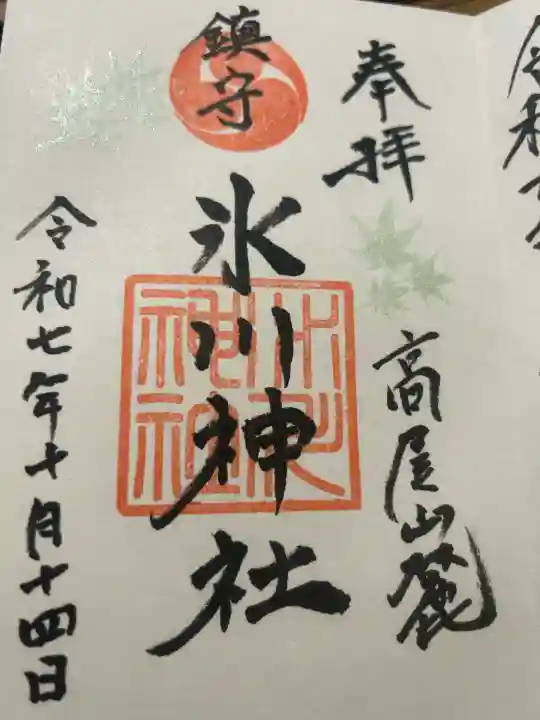 令和
奉拝
高尾山麓
鎮守
氷川神社
氷川
神社
令和七年十月十四日